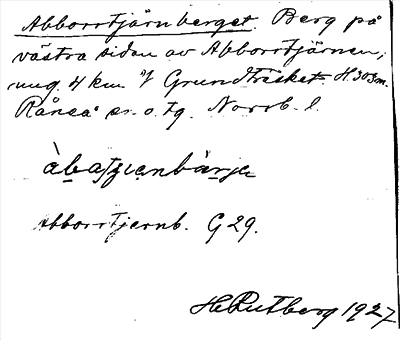 Abborrtjärnberget. Berg på
västra sidan av Abborrtjärnen,
ung. 4 km. V Grundträsket. H 303 m.
Råneå sn. o. tg. Norrb. l.
àbaʃʒenbärje
Abborrtjernb. G 29.
H Rutberg 1927